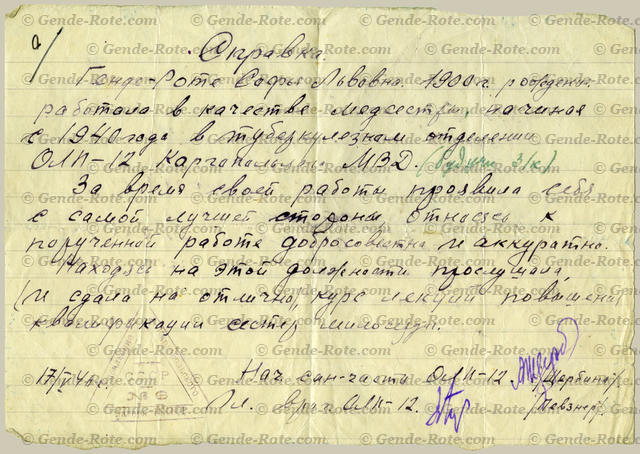 Справка.
Генде-Роте Софья Львовна. 1900 г. рожден.
работала в качестве медсестры, начиная
с 1940 года в туберкулезном отделении
ОЛП-12 Каргопольлага МВД. (будучи з/к)
За время своей работы проявила себя
с самой лучшей стороны, относясь к
порученной работе добросовестно и аккуратно.
Находясь на этой должности прослушала
и сдала на отлично курс лекций повышения
квалификации сестер
17/
Нач. сан-части ОЛП-12 /Щербина/
Гл. врач ОЛП-12. /Певзнер/
© Gende-Rote.com